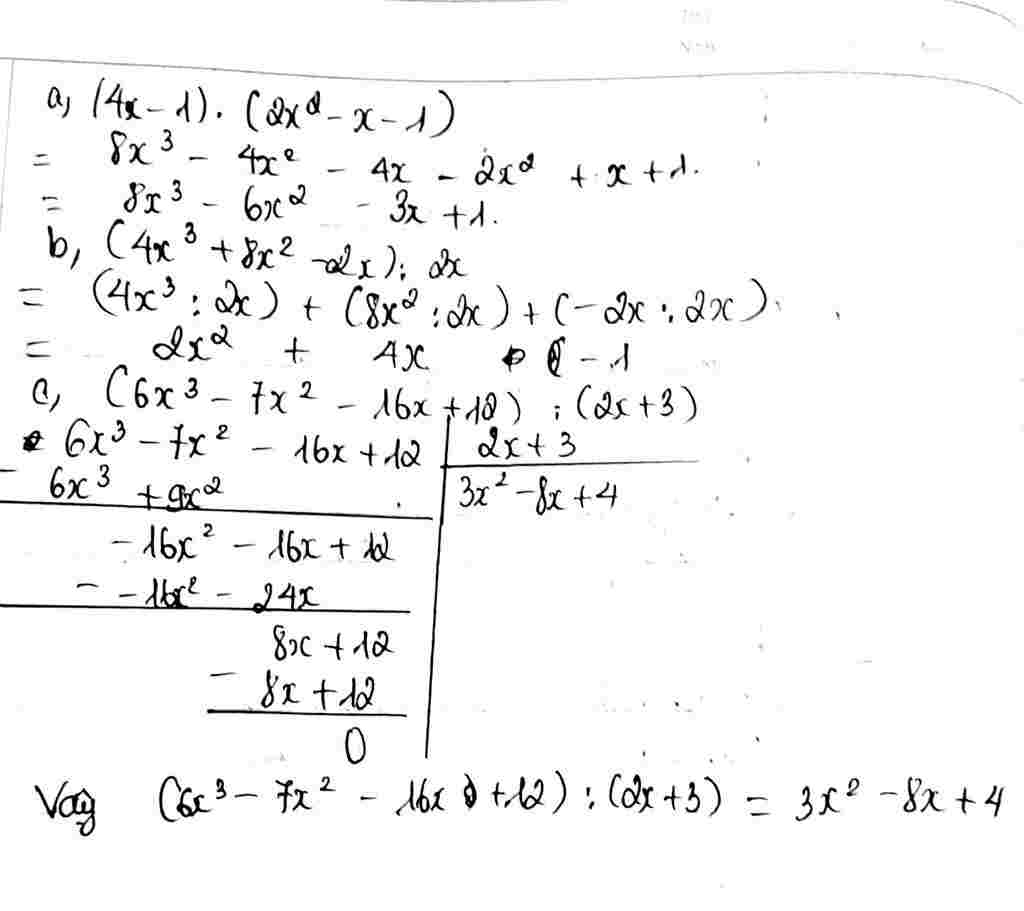 a, (4x - 1) . (2x² - x - 1)
= 8x³ - 4x² - 4x - 2x² + x + 1.
= 8x³ - 6x² - 3x + 1.
b, (4x³ + 8x² - 2x) : 2x
= (4x³ : 2x) + (8x² : 2x) + (- 2x : 2x).
= 2x² + 4x - 1
c, (6x³ - 7x² - 16x + 12) : (2x + 3)
6x³ - 7x² - 16x + 12 | 2x + 3
- 6x³ + 9x² | 3x² - 8x + 4
- 16x² - 16x + 12
- - 16x² - 24x
8x + 12
- 8x + 12
0
Vậy (6x³ - 7x² - 16x + 12) : (2x + 3) = 3x² - 8x + 4